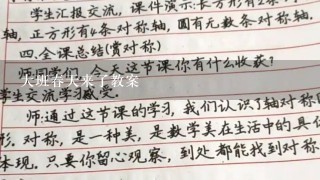 学生汇报交流,课件演示:长方形有2条
轴,正方形有4条对称轴,圆有无数条对称轴.
四.全课总结(赏对称)
师:同学们,今天这节课你有什么收获?
大班春天来了教案
学生交流学习感受.
师:通过这节课的学习,我们认识了轴对称图
形.对称,是一种美,是数学美在生活中的具体
体现.只要你留心观察,到处都能找到对称